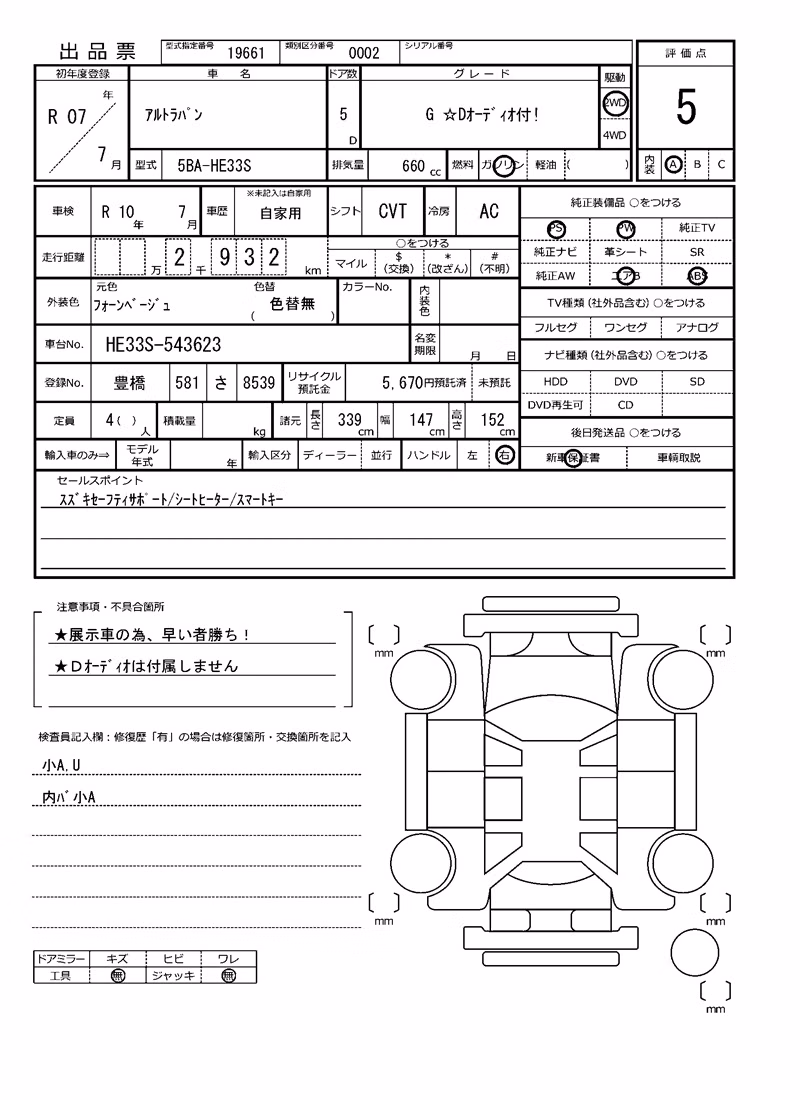 出品票 型式指定番号 19661 類別区分番号 0002 シリアル番号
評価点
初年度登録 車名 ドア数 グレード 駆動
R 07 年 7 月 アルトラパン 5 D G ☆Dオーディオ付! 2WD 4WD
5
型式 5BA-HE33S 排気量 660 cc 燃料 ガソリン 軽油 ( )
内装 A B C
車検 R 10 年 7 月 車歴 ※未記入は自家用 自家用 シフト CVT 冷房 AC
純正装備品 ○をつける
PS PW 純正TV
純正ナビ 革シート SR
純正AW エアB ABS
走行距離 万 2 千 9 3 2 km ○をつける
マイル $ (交換) * (改ざん) # (不明)
外装色 元色 フォーンベージュ 色替 ( 色替無 ) カラーNo. 内装色
TV種類(社外品含む) ○をつける
フルセグ ワンセグ アナログ
車台No. HE33S-543623 名変期限 月 日
ナビ種類(社外品含む) ○をつける
HDD DVD SD
DVD再生可 CD
登録No. 豊橋 581 さ 8539 リサイクル預託金 5,670円預託済 未預託
定員 4( ) 人 積載量 kg 諸元 長さ 339 cm 幅 147 cm 高さ 152 cm
後日発送品 ○をつける
新車保証書 車輌取説
輸入車のみ⇒ モデル年式 年 輸入区分 ディーラー 並行 ハンドル 左 右
セールスポイント
スズキセーフティサポート/シートヒーター/スマートキー
注意事項・不具合箇所
★展示車の為、早い者勝ち!
★Dオーディオは付属しません
検査員記入欄:修復歴「有」の場合は修復箇所・交換箇所を記入
小A,U
内バ小A
ドアミラー キズ ヒビ ワレ
工具 無 ジャッキ 無
mm
mm
mm
mm
mm